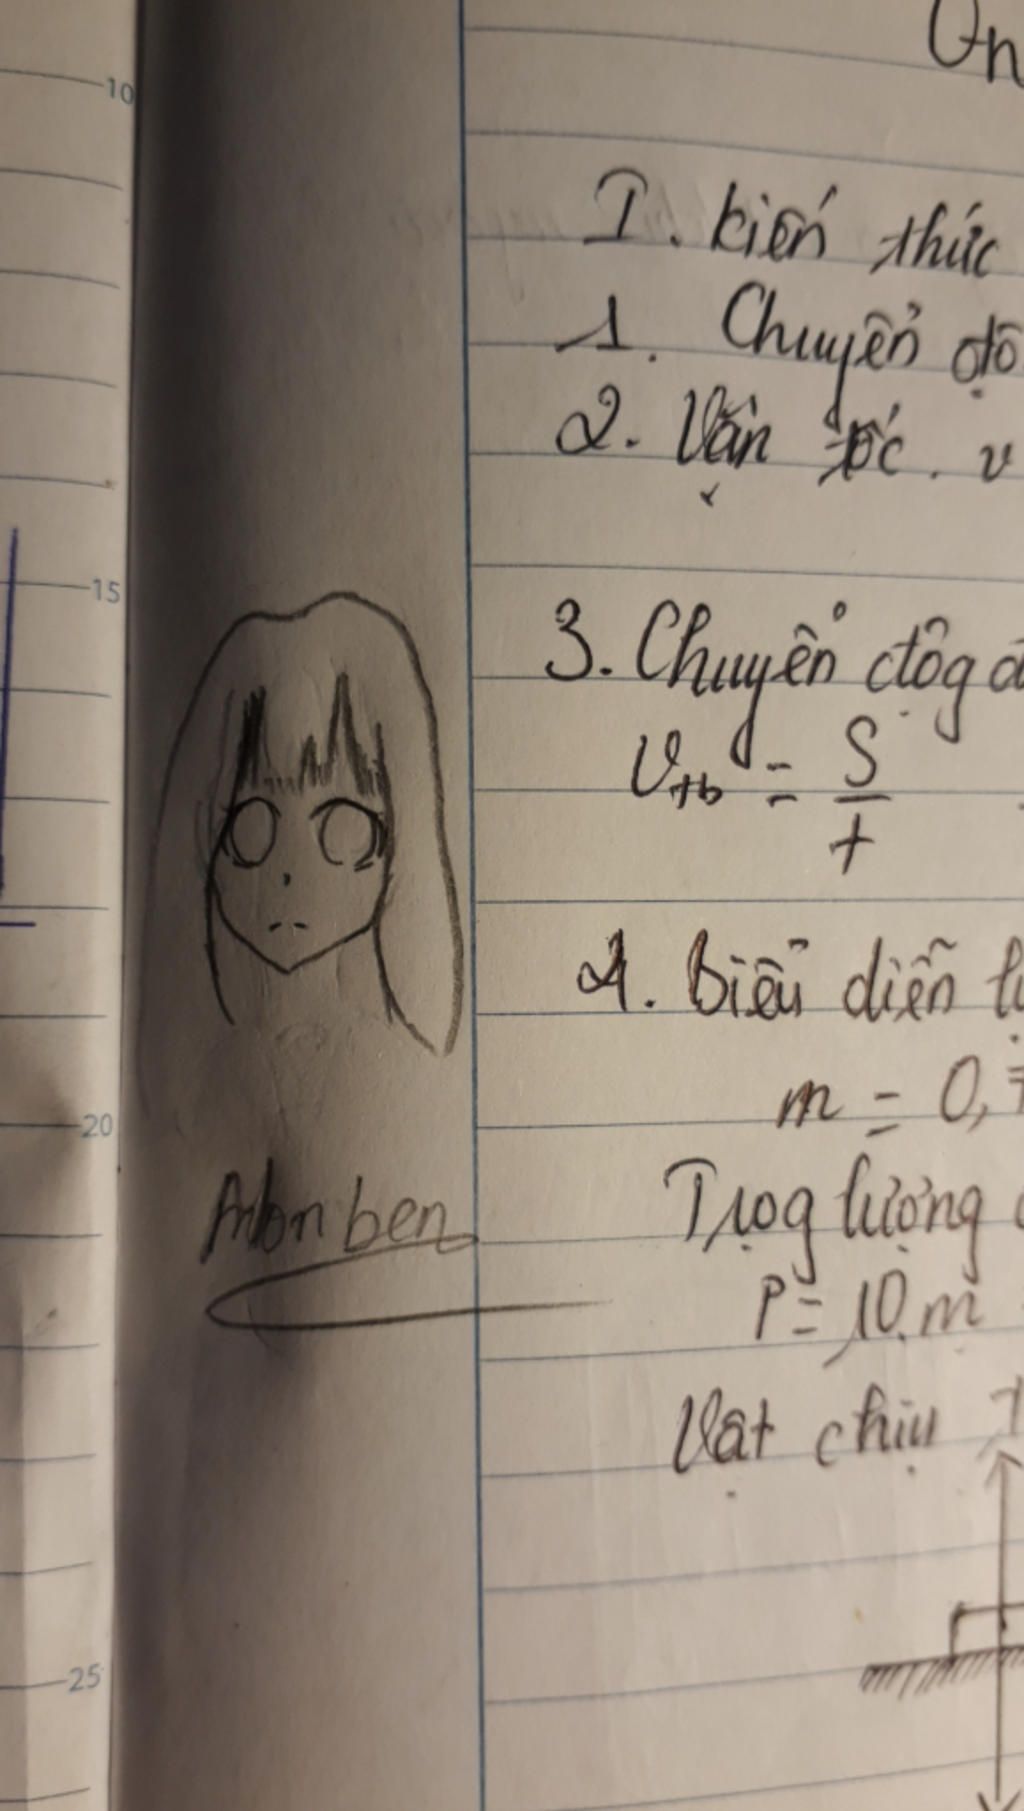 10
15
20
25
Ôn
I. kiến thức
1. Chuyển độ
2. Vận tốc. v
3. Chuyển độg
Vtb = S
t
4. Biểu diễn
m = 0,
Trọg lượng
P = 10.m
Vật chịu
ben